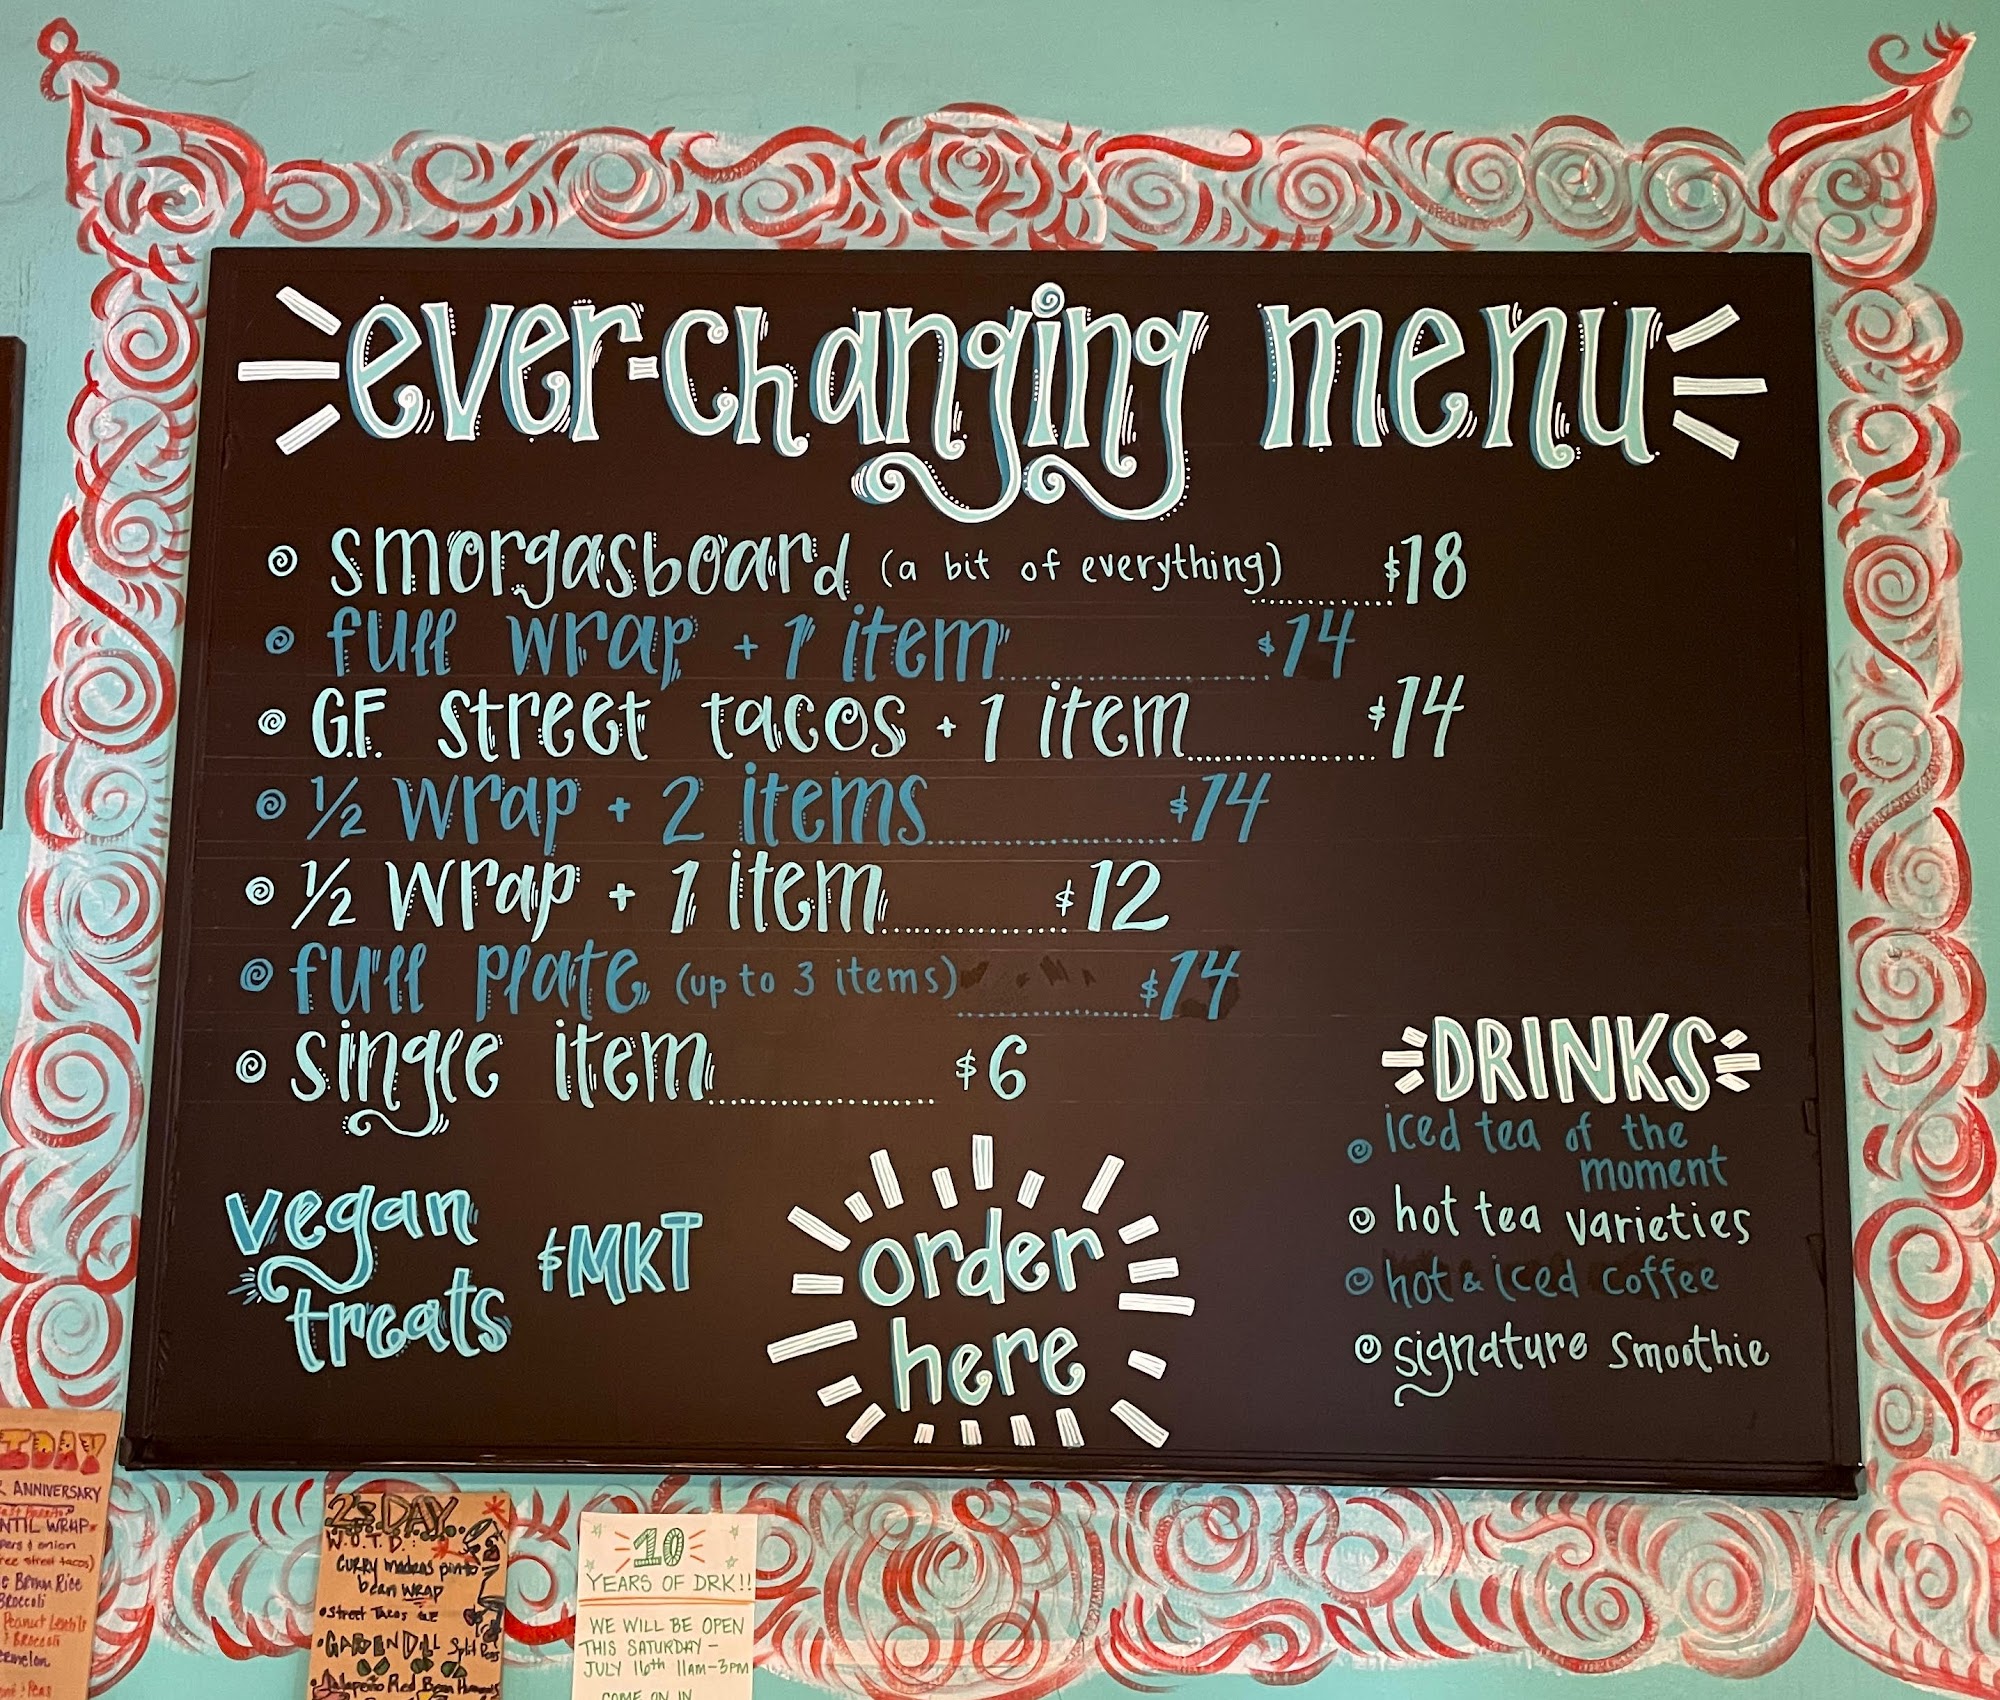 ever-changing menu
smorgasboard (a bit of everything) $18
full wrap + 1 item $14
G.F. street tacos + 1 item $14
1/2 wrap + 2 items $14
1/2 wrap + 1 item $12
full plate (up to 3 items) $14
single item $6
DRINKS
iced tea of the
moment
hot tea varieties
hot & iced coffee
signature smoothie
vegan
treats
$MKT
order
here
ANNIVERSARY
WRAP
onion
street tacos)
Brown Rice
Broccoli
Peanut Lentils
& Broccoli
Peas
W.O.T.D.:
Curry madras pinto
bean WRAP
Street Tacos GF
GARDEN DILL Split Peas
Jalapeño Red Bean Hummus
10
YEARS OF DRK!!
WE WILL BE OPEN
THIS SATURDAY -
JULY 16th 11AM-3PM
COME ON IN